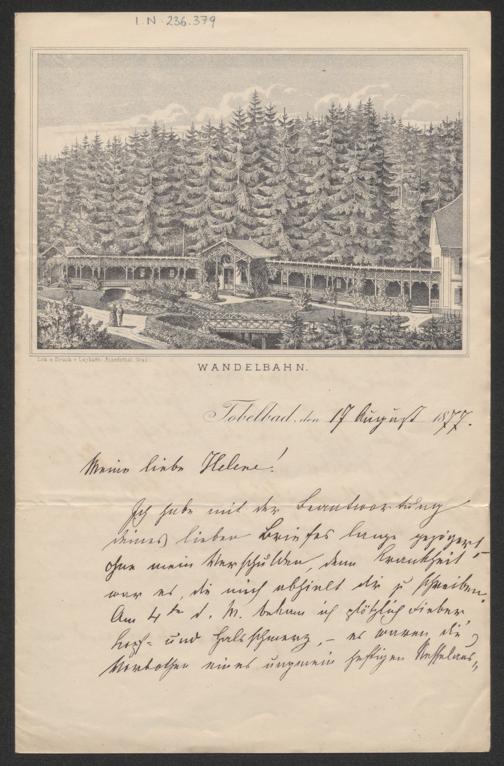 I. N. 236.379
WANDELBAHN.
Tobelbad, den 17 August 1877.
Meine liebe Helene!
Ich habe mit der Beantwortung
deines lieben Briefes lange gezögert
ohne mein Verschulden, denn Krankheit
war es, die mich abhielt dir zu schreiben.
Am 4ten d. M. bekam ich plötzlich Fieber
Kopf- und Halsschmerz, – es waren die
Vorbothen eines ungemein heftigen Nesselaus„